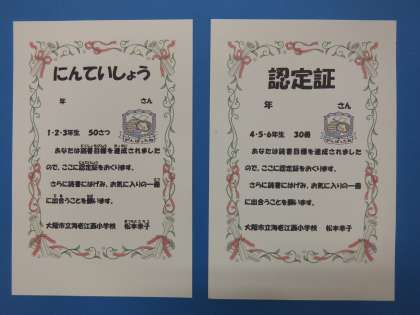 にんていしょう
年 さん
1・2・3年生 50さつ
あなたは読書目標を達成されました
ので、ここに認定証をおくります。
さらに読書にはげみ、お気に入りの一冊
に出会うことを願います。
大阪市立海老江西小学校 松本幸子
認定証
年 さん
4・5・6年生 30冊
あなたは読書目標を達成されました
ので、ここに認定証をおくります。
さらに読書にはげみ、お気に入りの一冊
に出会うことを願います。
大阪市立海老江西小学校 松本幸子